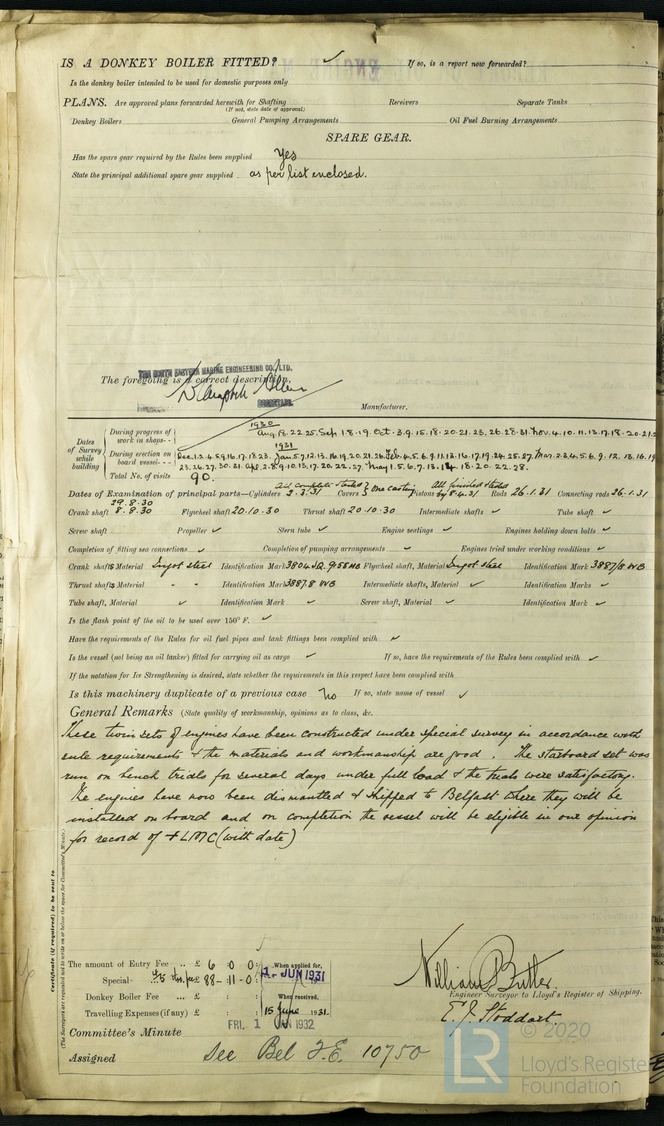 IS A DONKEY BOILER FITTED? ✓ If so, is a report now forwarded?
Is the donkey boiler intended to be used for domestic purposes only
PLANS. Are approved plans forwarded herewith for Shafting Receivers Separate Tanks
(If not, state date of approval)
Donkey Boilers General Pumping Arrangements Oil Fuel Burning Arrangements
SPARE GEAR.
Has the spare gear required by the Rules been supplied Yes
State the principal additional spare gear supplied as per list enclosed.
THE NORTH EASTERN MARINE ENGINEERING CO., LTD.
The foregoing is a correct description,
SECRETARY.
Manufacturer.
Dates of Survey while building
1930
During progress of work in shops - - Aug. 18. 22. 25. Sep 1. 8. 19. Oct. 3. 9. 15. 18. 20. 21. 23. 26. 28. 31. Nov. 4. 10. 11. 13. 17. 18. 20. 21.
1931
During erection on board vessel - - - Dec. 1. 2. 4. 5. 9. 16. 17. 18. 23. Jan. 5. 7. 12. 13. 16. 19. 20. 21. 26. Feb. 4. 5. 6. 9. 11. 13. 16. 17. 19. 24. 25. 27. Mar. 2. 3. 4. 5. 6. 9. 12. 13. 16. 19
23. 26. 27. 30. 31. Apl. 2. 8. 9. 10. 13. 17. 20. 22. 27. May 1. 5. 6. 7. 13. 14. 18. 20. 22. 28.
Total No. of visits 90.
Dates of Examination of principal parts—Cylinders 2.3.31 Covers } One casting Pistons by 8.4.31 Rods 26.1.31 Connecting rods 26.1.31
29.8.30
Crank shaft 8.8.30 Flywheel shaft 20.10.30 Thrust shaft 20.10.30 Intermediate shafts ✓ Tube shaft ✓
Screw shaft Propeller ✓ Stern tube ✓ Engine seatings ✓ Engines holding down bolts ✓
Completion of fitting sea connections ✓ Completion of pumping arrangements ✓ Engines tried under working conditions ✓
Crank shafts Material Ingot steel Identification Mark 3804 JQ. 9155 NB Flywheel shaft, Material Ingot steel Identification Mark 3887/8 WB
Thrust shafts Material " " Identification Mark 3887.8 WB Intermediate shafts, Material ✓ Identification Marks ✓
Tube shaft, Material ✓ Identification Mark ✓ Screw shaft, Material ✓ Identification Mark ✓
Is the flash point of the oil to be used over 150° F. ✓
Have the requirements of the Rules for oil fuel pipes and tank fittings been complied with ✓
Is the vessel (not being an oil tanker) fitted for carrying oil as cargo ✓ If so, have the requirements of the Rules been complied with ✓
If the notation for Ice Strengthening is desired, state whether the requirements in this respect have been complied with
Is this machinery duplicate of a previous case No If so, state name of vessel ✓
General Remarks (State quality of workmanship, opinions as to class, &c.
These twin sets of engines have been constructed under special survey in accordance with
rule requirements & the materials and workmanship are good. The starboard set was
run on bench trials for several days under full load & the trials were satisfactory.
The engines have now been dismantled & shipped to Belfast where they will be
installed on board and on completion the vessel will be eligible in our opinion
for record of + LMC (with date)
Certificate (if required) to be sent to
(The Surveyors are requested not to write on or below the space for Committee's Minute.)
The amount of Entry Fee .. £ 6 : 0 : 0 When applied for,
Special £ 88 - 11 - 0 JUN 1931
Donkey Boiler Fee ... £ : : When received,
Travelling Expenses (if any) £ : : 15 June 1931.
William Butler
Engineer Surveyor to Lloyd's Register of Shipping.
E. J. Stoddart.
Committee's Minute FRI. 1 JUN 1932
Assigned See Bel F.E. 10750
© 2020
LR Lloyd's Register
Foundation